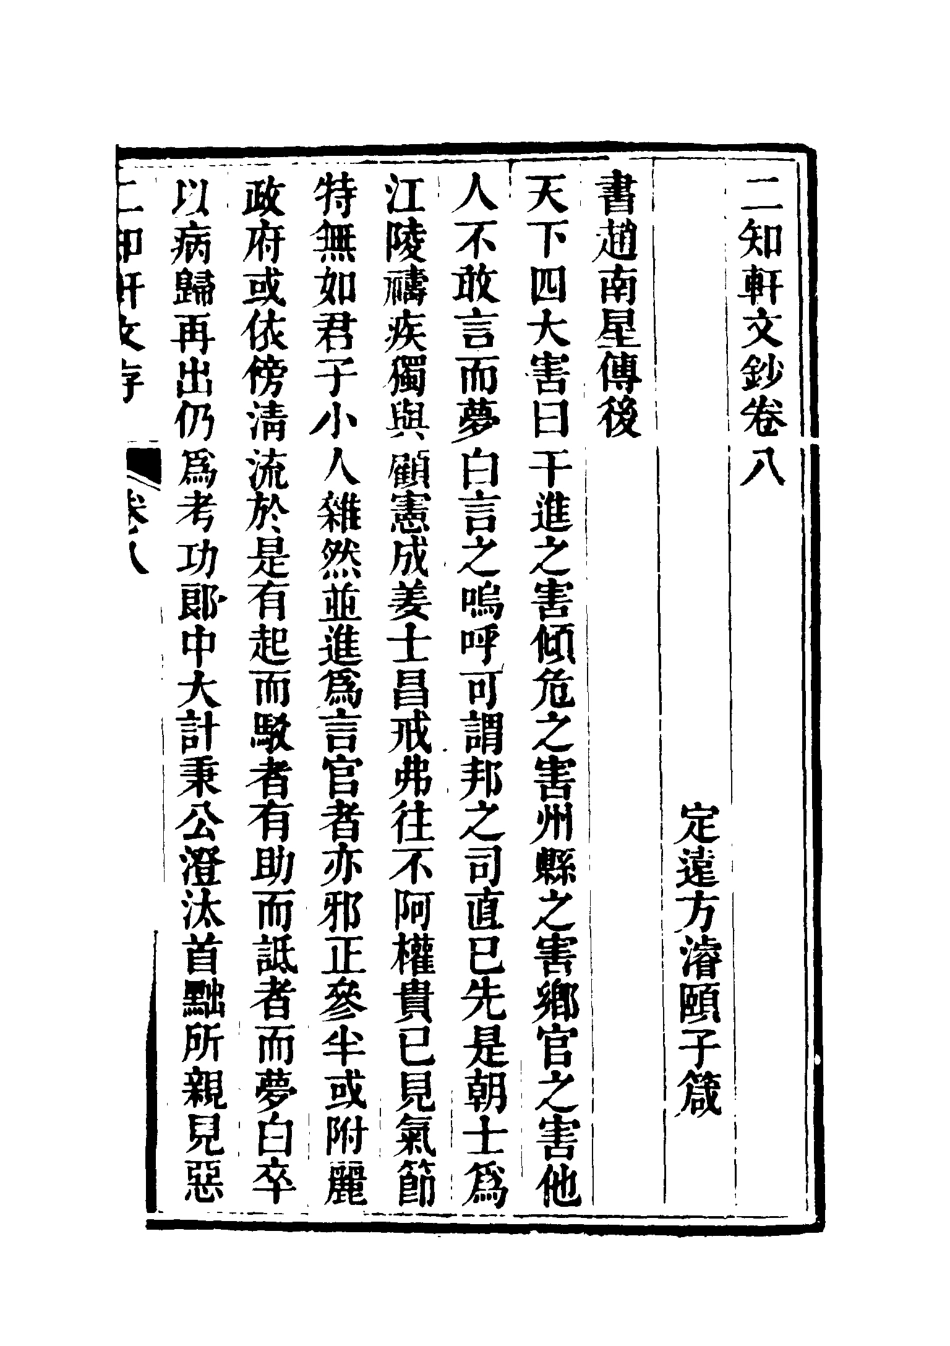 二知軒文鈔卷八
定遠方濬頤子箴
書趙南星傳後
天下四大害曰干進之害傾危之害州縣之害鄉官之害他
人不敢言而夢白言之嗚呼可謂邦之司直已先是朝士爲
江陵禱疾獨與顧憲成姜士昌戒弗往不阿權貴已見氣節
特無如君子小人雜然並進爲言官者亦邪正參半或附麗
政府或依傍清流於是有起而駁者有助而詆者而夢白卒
以病歸再出仍爲考功郎中大計秉公澄汰首黜所親見惡
二知軒文存 卷八